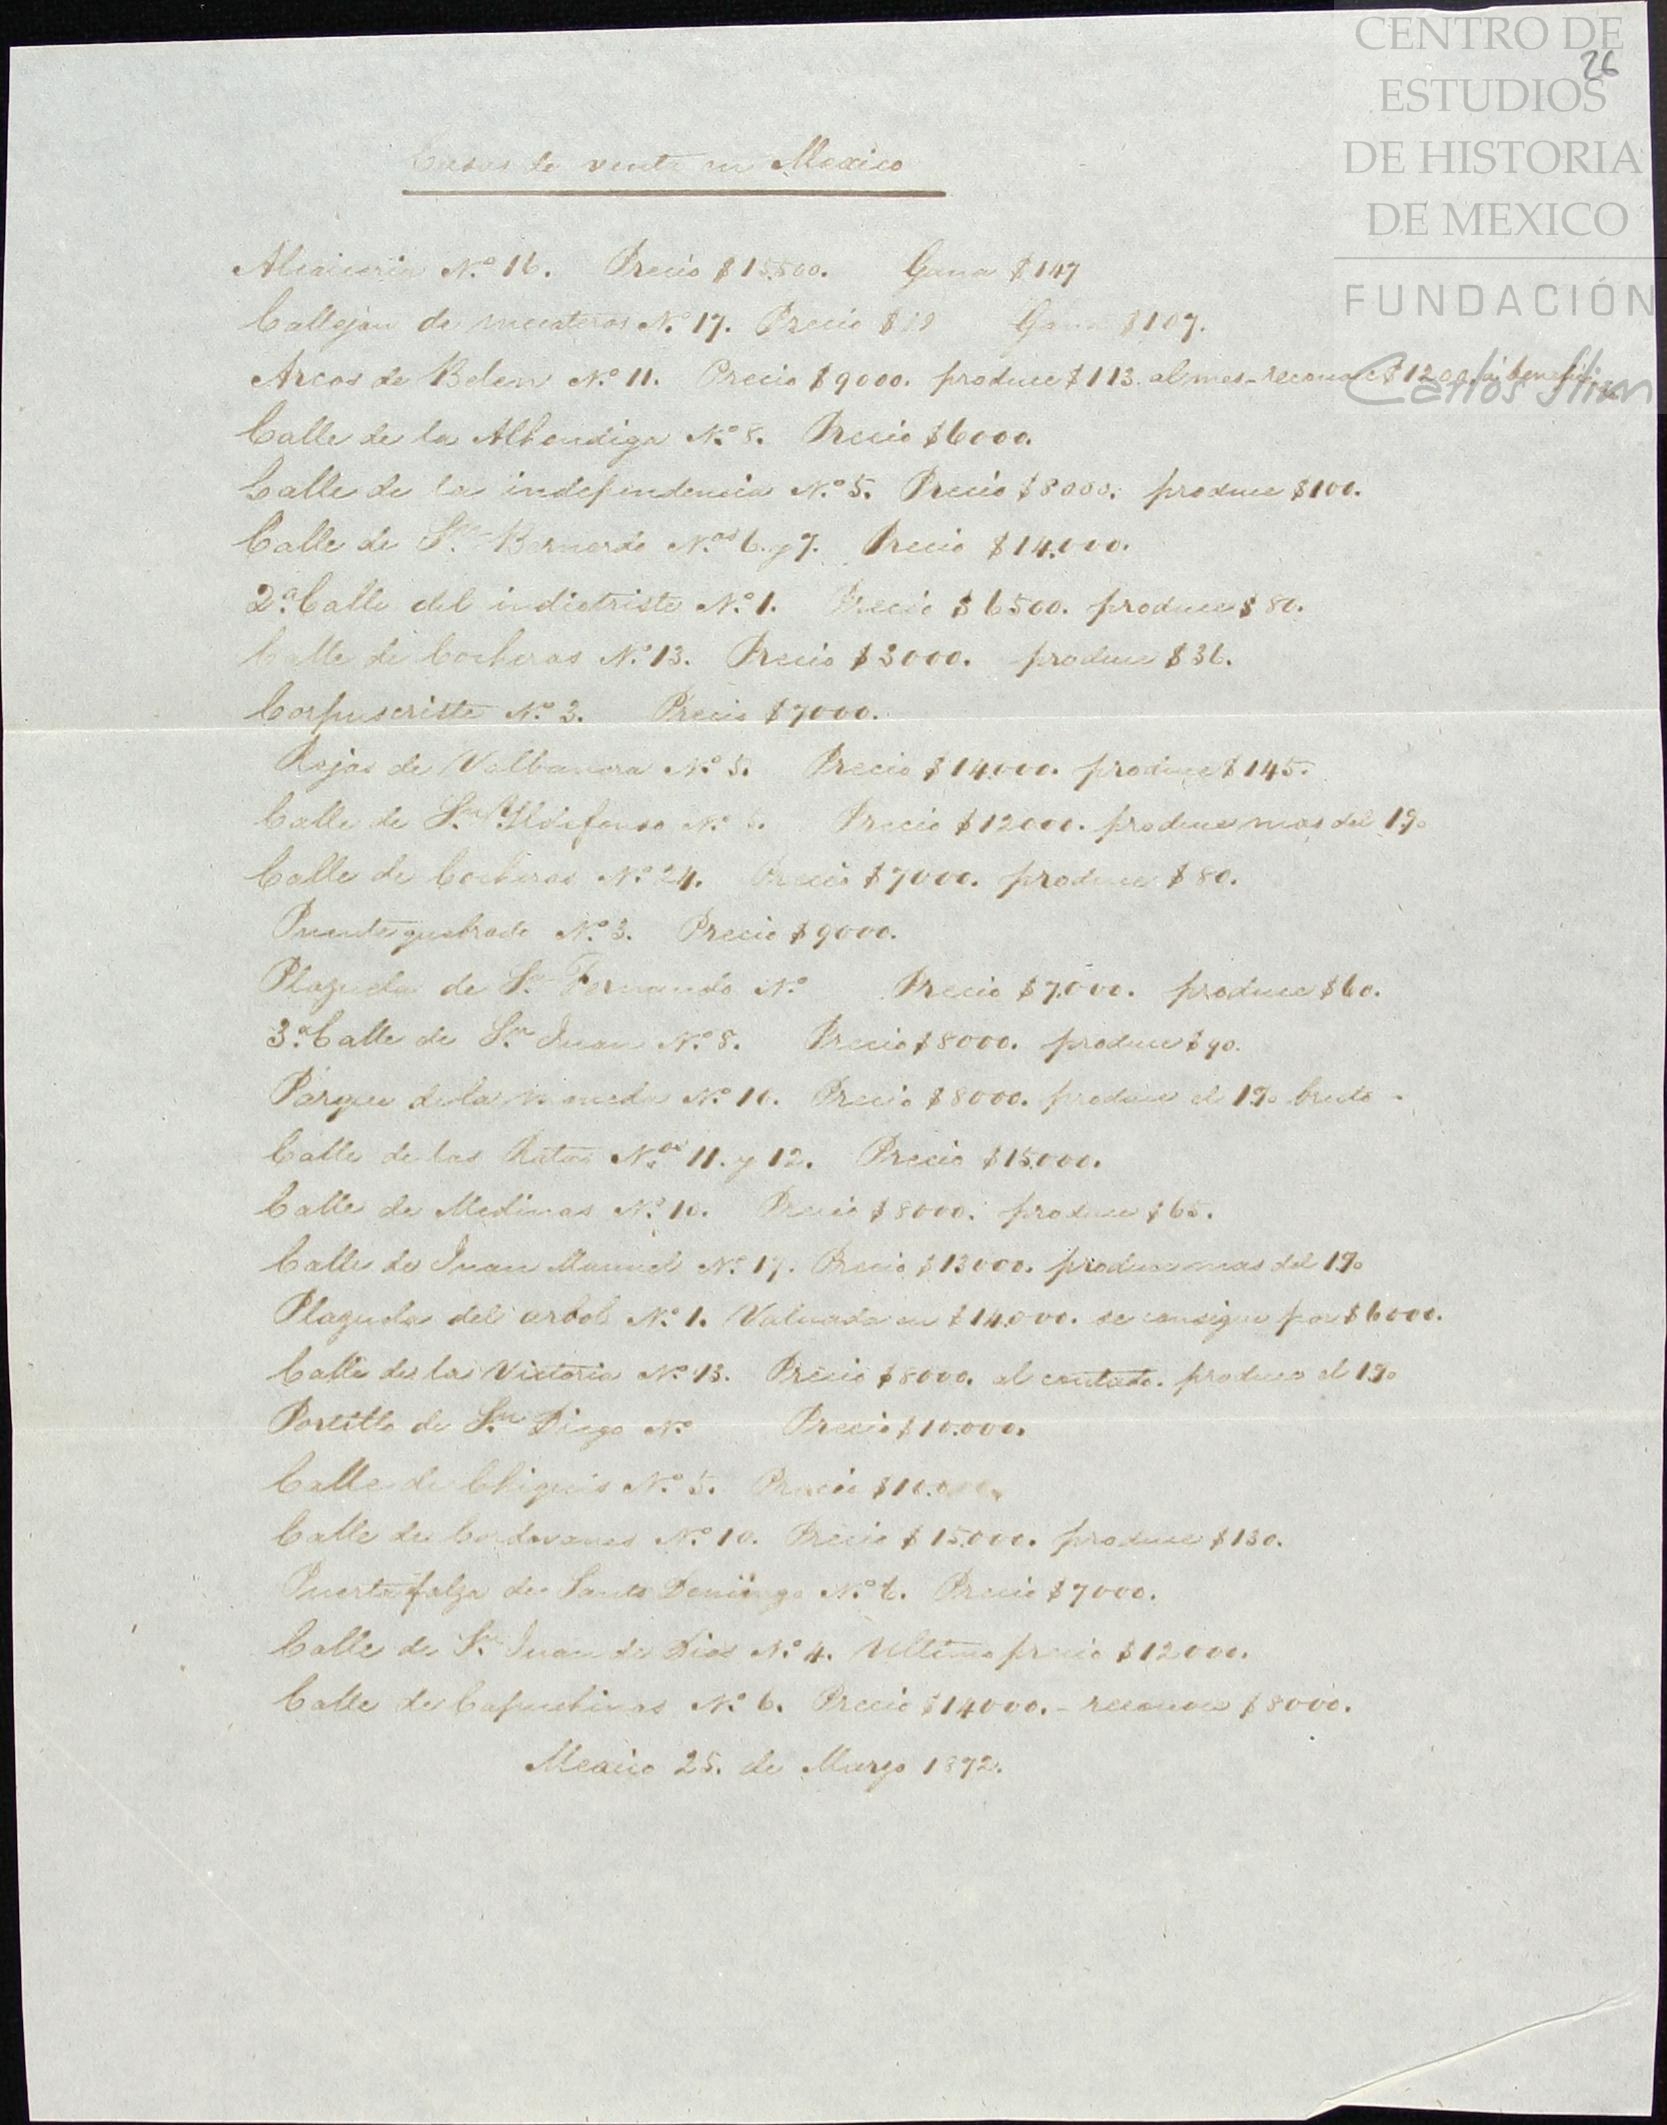 CENTRO DE
26
ESTUDIOS
DE HISTORIA
DE MEXICO
FUNDACIÓN
Carlos Slim
Casas de venta en Mexico
Alcaiceria N.º 16. Precio $15.500. Gana $147
Callejon de mecateros N.º 17. Precio $12 Gana $107.
Arcos de Belen N.º 11. Precio $9000. produce $113. al mes - reconoce $1200. a
Calle de la Alhondiga N.º 8. Precio $6000.
Calle de la independencia N.º 5. Precio $8000. produce $100.
Calle de S.n Bernardo N.os 6. y 7. Precio $14.000.
2.ª Calle del indiotriste N.º 1. Precio $6500. produce $80.
Calle de Cocheras N.º 13. Precio $3000. produce $36.
Corpuscriste N.º 3. Precio $7000.
Rejas de Valbanera N.º 5. Precio $14.000. produce $145.
Calle de S.n Yldefonso N.º Precio $12000. produce mas del 1%
Calle de Cocheras N.º 24. Precio $7000. produce $80.
Puentequebrado N.º 3. Precio $9000.
Plazuela de S.n Fernando N.º Precio $7.000. produce $60.
3.ª Calle de S.n Juan N.º 8. Precio $8000. produce $90.
Parque de la moneda N.º 10. Precio $8000. produce el 1% bruto -
Calle de las Ratas N.os 11. y 12. Precio $15.000.
Calle de Medinas N.º 10. Precio $8000. produce $65.
Calle de Juan Manuel N.º 17. Precio $13000. produce mas del 1%
Plazuela del arbol N.º 1. Valuada en $14.000. se consigue por $6000.
Calle de la Victoria N.º 13. Precio $8000. al contado. produce el 1%
Portillo de S.n Diego N.º Precio $10.000.
Calle de Chiquis N.º 5. Precio $10.000.
Calle de Cordovanes N.º 10. Precio $15.000. produce $130.
Puerta falza de Santo Domingo N.º 6. Precio $7000.
Calle de S.n Juan de Dios N.º 4. Ultimo precio $12000.
Calle de Capuchinas N.º 6. Precio $14000. - reconoce $8000.
Mexico 25. de Marzo 1872.